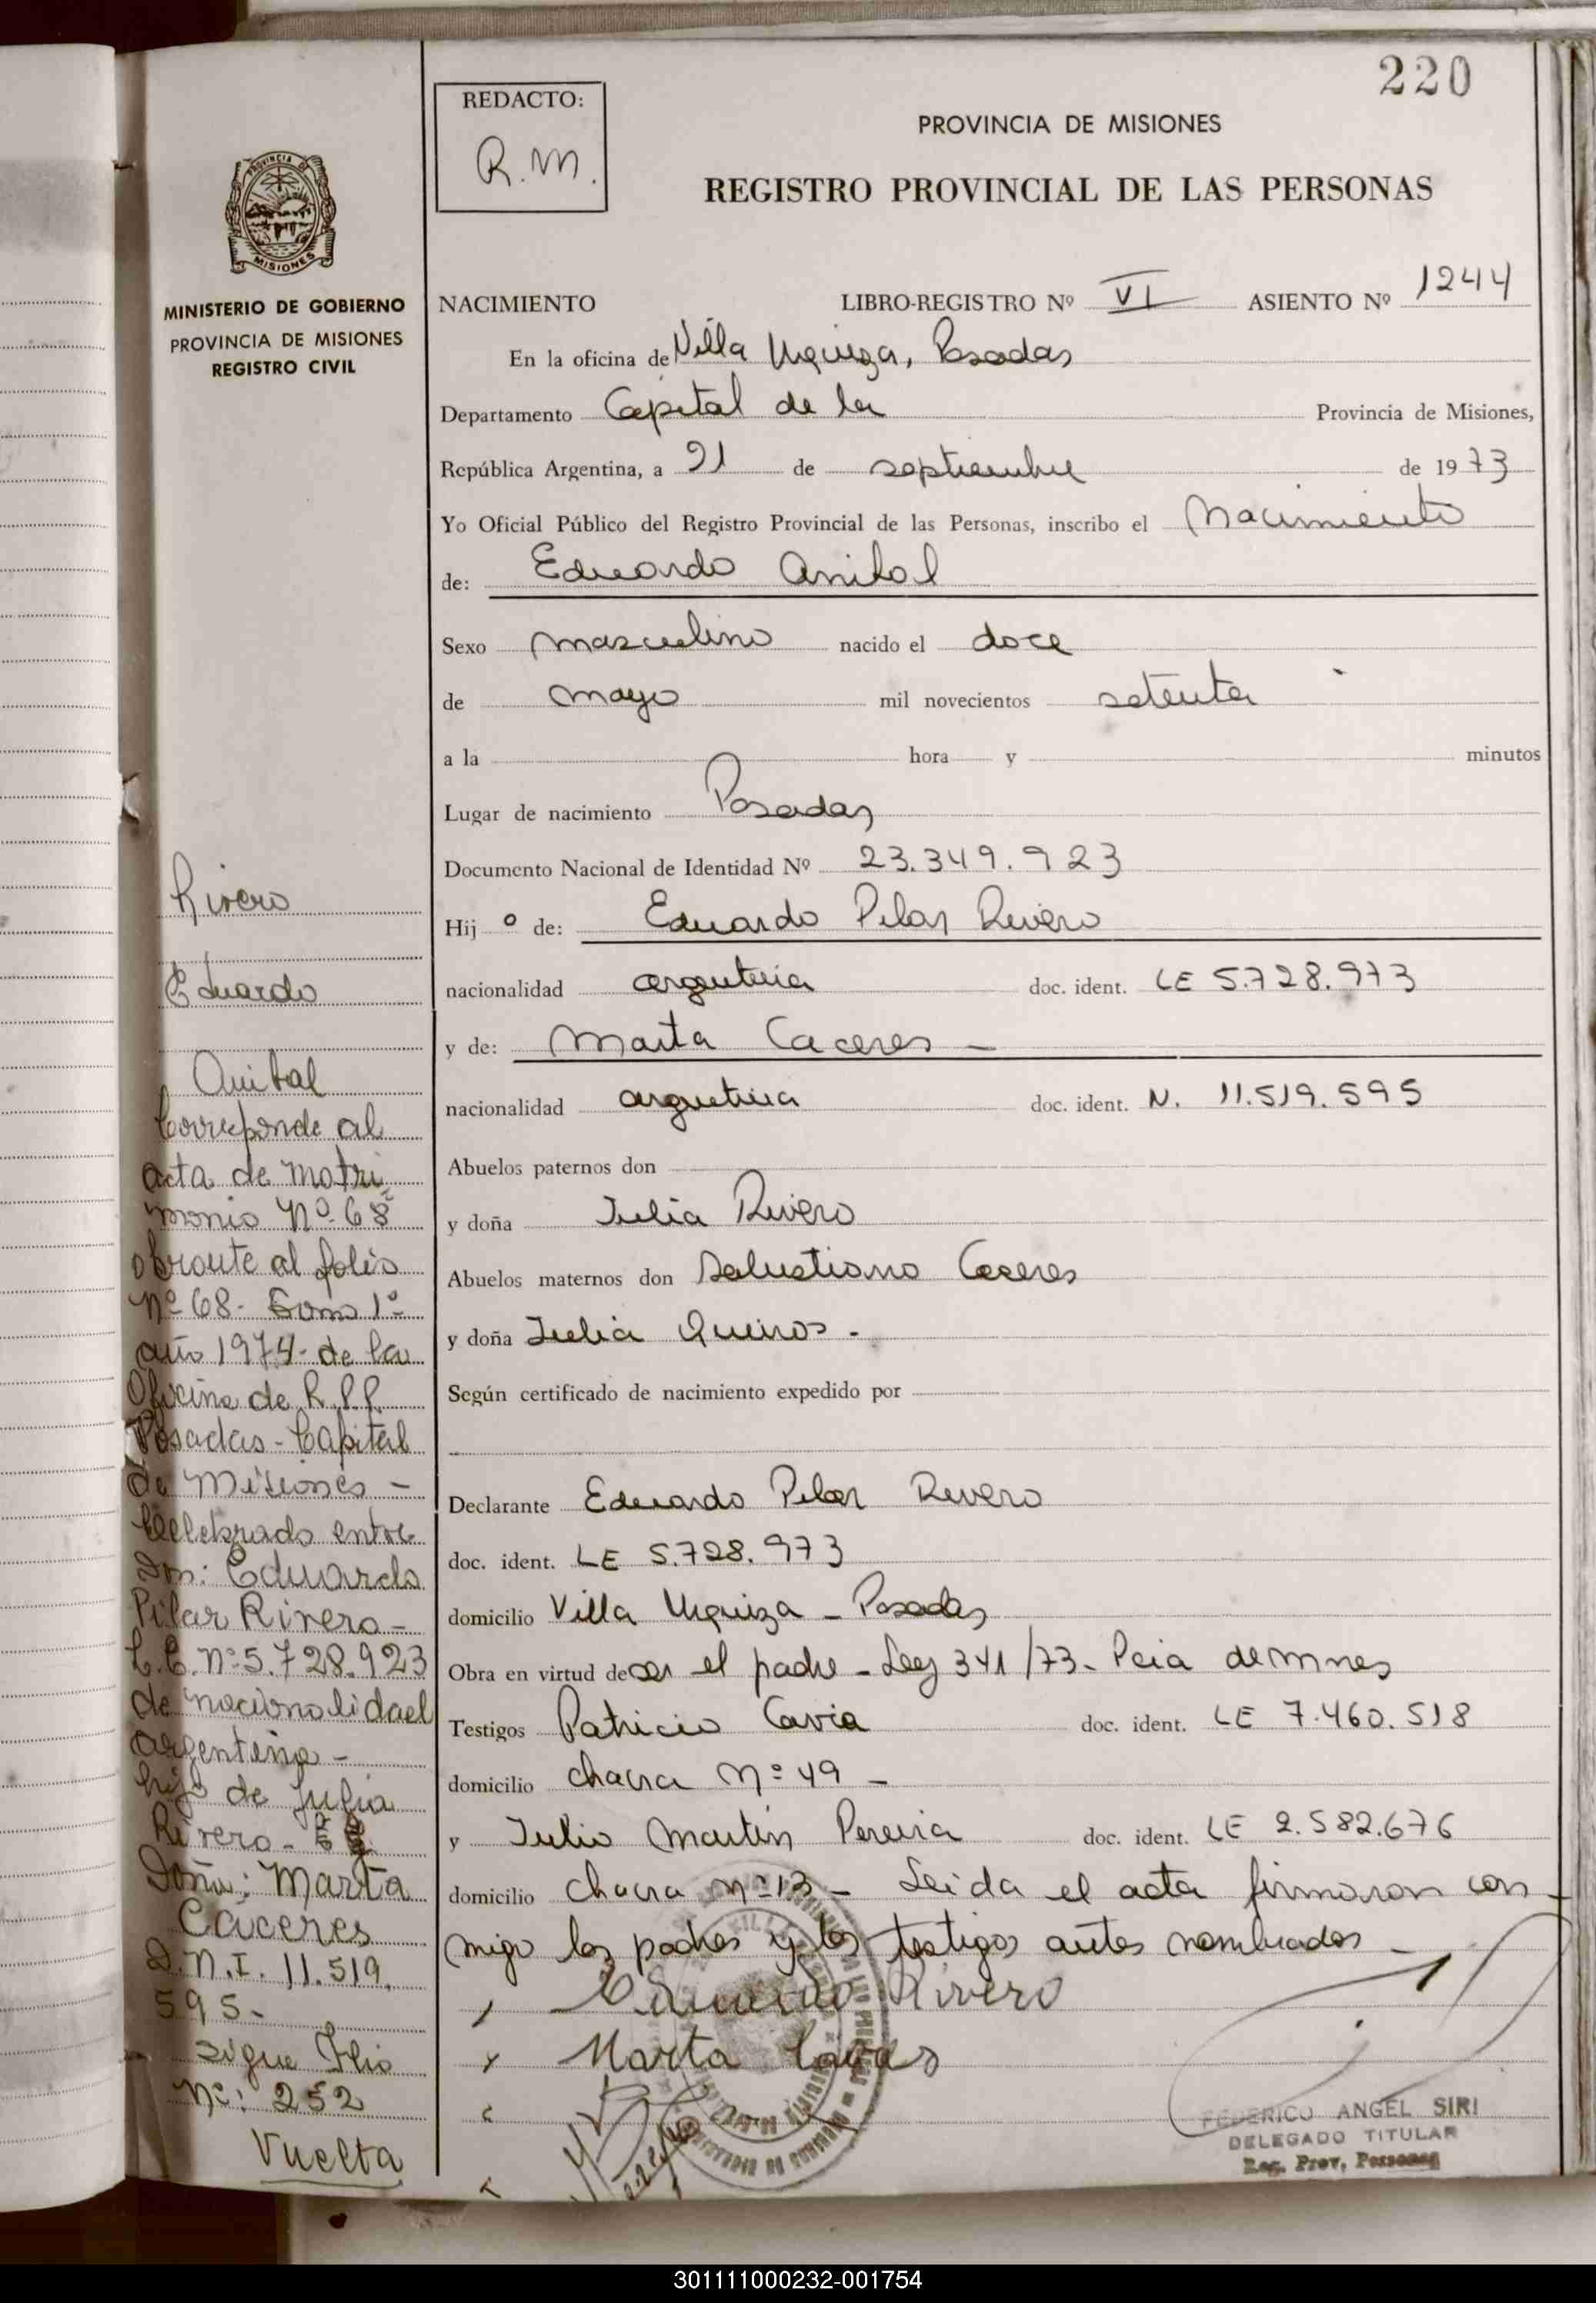 220
REDACTO:
R.M.
PROVINCIA DE MISIONES
REGISTRO PROVINCIAL DE LAS PERSONAS
PROVINCIA DE
MISIONES
MINISTERIO DE GOBIERNO
PROVINCIA DE MISIONES
REGISTRO CIVIL
NACIMIENTO LIBRO-REGISTRO Nº VI ASIENTO Nº 1244
En la oficina de Villa Urquiza, Posadas
Departamento Capital de la Provincia de Misiones,
República Argentina, a 21 de septiembre de 1973
Yo Oficial Público del Registro Provincial de las Personas, inscribo el Nacimiento
de: Eduardo Anibal
Sexo masculino nacido el doce
de mayo mil novecientos setenta
a la hora y minutos
Lugar de nacimiento Posadas
Documento Nacional de Identidad Nº 23.349.923
Hijo de: Eduardo Pilar Rivero
nacionalidad argentina doc. ident. LE 5.728.973
y de: Marta Caceres -
nacionalidad argentina doc. ident. N. 11.519.595
Abuelos paternos don
y doña Julia Rivero
Abuelos maternos don Salustiano Caceres
y doña Julia Quiros -
Según certificado de nacimiento expedido por
Declarante Eduardo Pilar Rivero
doc. ident. LE 5.728.973
domicilio Villa Urquiza - Posadas
Obra en virtud de ser el padre - Ley 341/73 - Pcia de Mnes
Testigos Patricio Cavia doc. ident. LE 7.460.518
domicilio chacra Nº 49 -
y Julio Martin Pereira doc. ident. LE 2.582.676
domicilio chacra Nº 13 - Leida el acta firmaron con
migo los padres y los testigos antes nombrados -
Eduardo Rivero
Marta Caceres
FEDERICO ANGEL SIRI
DELEGADO TITULAR
Reg. Prov. Personas
Rivero
Eduardo
Anibal
Corresponde al
acta de matri
monio Nº 68
obrante al folio
Nº 68 - Tomo 1º
año 1974 - de la
Oficina de R.P.P.
Posadas - Capital
de Misiones -
Celebrado entre
Don: Eduardo
Pilar Rivero -
C.I. Nº 5.728.923
de nacionalidad
argentina -
hijo de Julia
Rivero -
Doña: Marta
Cáceres
D.N.I. 11.519.
595 -
sigue Flio
Nº: 252
Vuelta
301111000232-001754